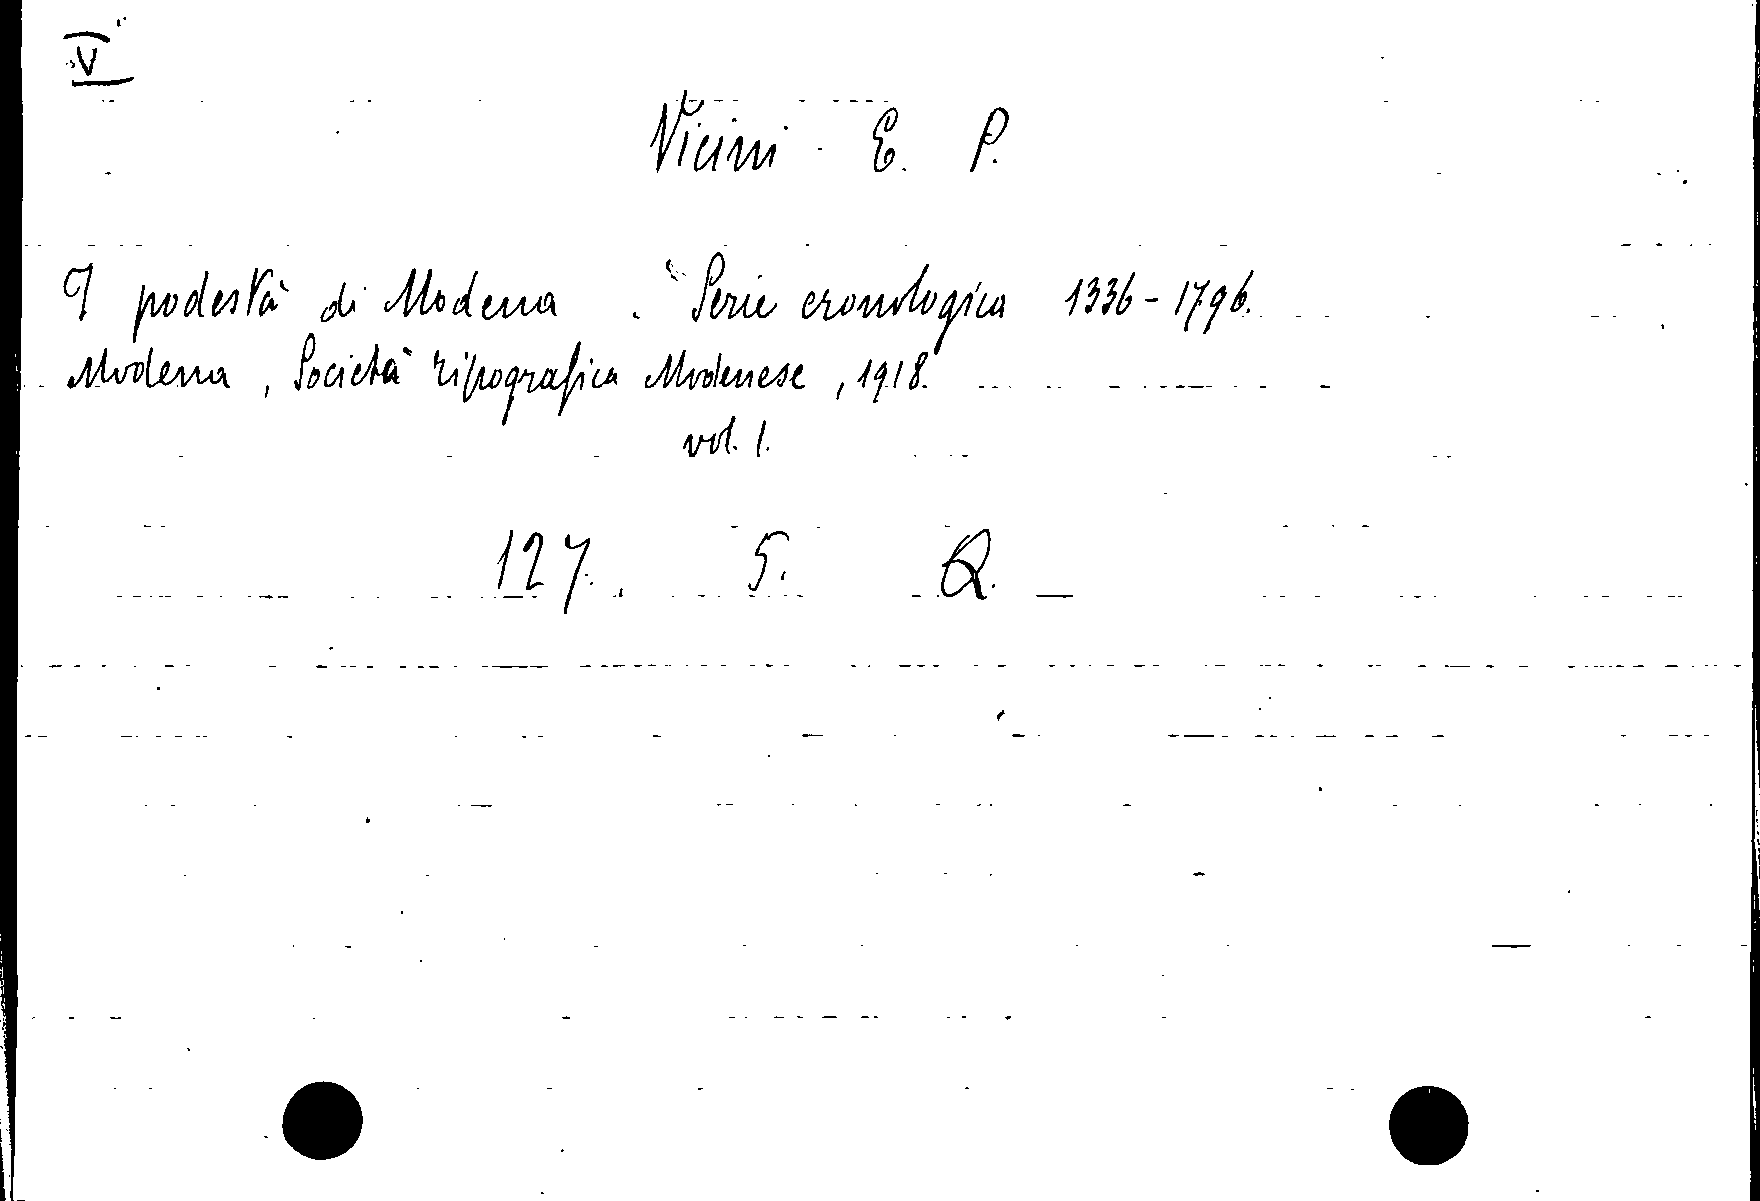 V
Vicini E. P.
I podestà di Modena. Serie cronologica 1336-1796.
Modena, Società tipografica Modenese, 1918.
vol. 1.
127. 5. Q.